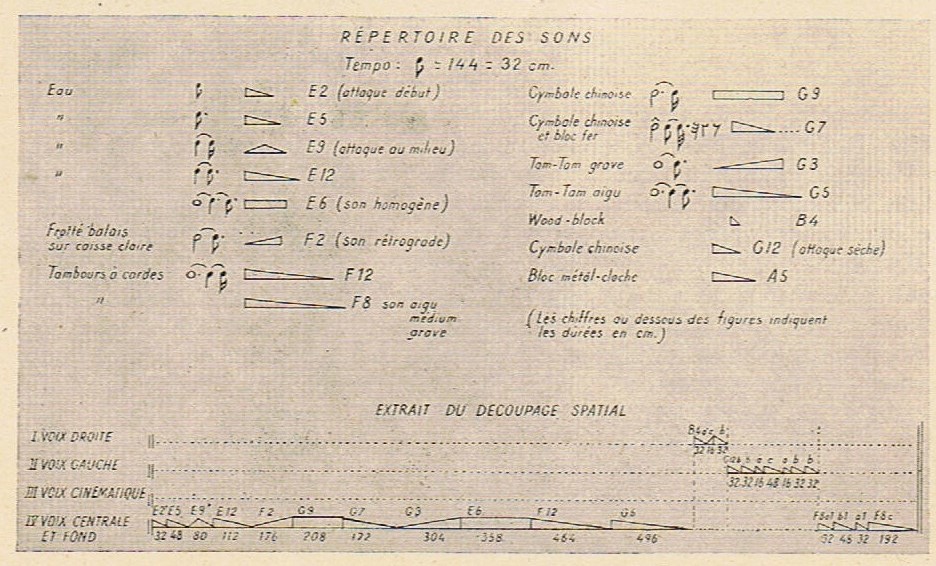 RÉPERTOIRE DES SONS
Tempo : = 144 = 32 cm.
Eau E2 (attaque début)
" E5
" E9 (attaque au milieu)
" E12
E6 (son homogène)
Frotté balais
sur caisse claire F2 (son rétrograde)
Tambours à cordes F12
" F8 son aigu
médium
grave
Cymbale chinoise G9
Cymbale chinoise
et bloc fer G7
Tam-Tam grave G3
Tam-Tam aigu G5
Wood-block B4
Cymbale chinoise G12 (attaque sèche)
Bloc métal-cloche A5
(Les chiffres au dessous des figures indiquent
les durées en cm.)
EXTRAIT DU DECOUPAGE SPATIAL
I. VOIX DROITE B4 a c b
32 16 32
II VOIX GAUCHE b a c a b b
32 32 16 48 16 32 32
III VOIX CINÉMATIQUE
IV VOIX CENTRALE
ET FOND
E2 E5 E9 E12 F2 G9 G7 G3 E6 F12 G5 F8a1 b1 a1 F8c
32 48 80 112 176 208 304 358 464 496 32 48 32 192